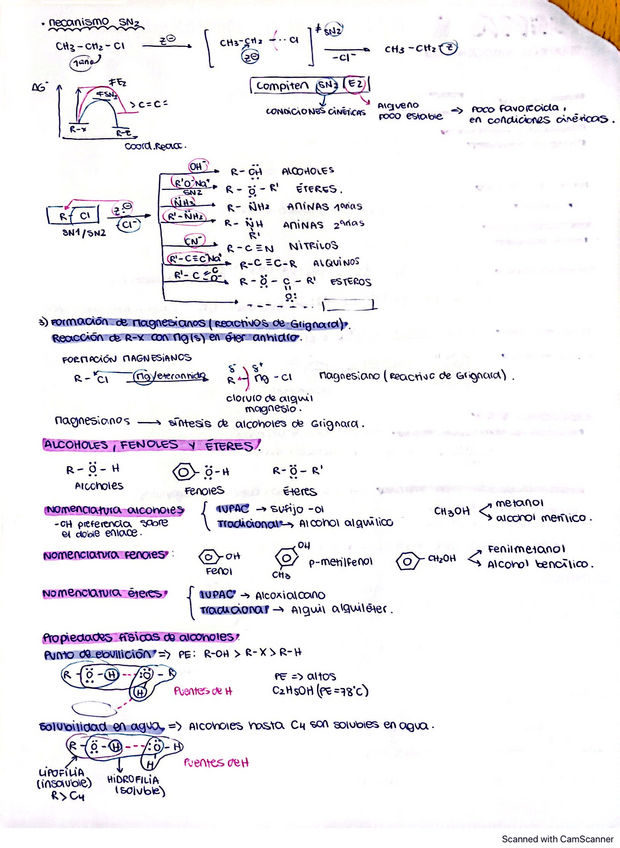 • mecanismo SN2
CH3-CH2-Cl  Z⊖ → [ CH3-CH2 ⋯ Cl  Z⊖ ] ≠ SN2  -Cl⁻ → CH3-CH2 Z
1ario
ΔG
≠E2
≠SN2
>C=C<
R-X
R-Z
Coord. Reacc.
Compiten SN2 E2
CONDICIONES CINÉTICAS
Alqueno poco estable → poco favorecida, en condiciones cinéticas.
R-Cl  Z:⊖  Cl⁻
SN1/SN2
OH⁻  R-ÖH  ALCOHOLES
R'O⁻Na⁺  SN2  R-Ö-R'  ÉTERES.
N̈H3  R-N̈H2  AMINAS 1arias
R'-N̈H2  R-N̈H  R'  AMINAS 2arias
CN⁻  R-C≡N  NITRILOS
R'-C≡C⁻Na⁺  R-C≡C-R  ALQUINOS
R'-C=O O⁻  R-Ö-C-R'  :O:  ESTEROS
3) Formación de magnesianos (Reactivos de Grignard).
Reacción de R-X con Mg(s) en éter anhidro.
FORMACIÓN MAGNESIANOS
R-Cl  Mg/eteranhidro → δ⁻ δ⁺ R-Mg-Cl  magnesiano (Reactivo de Grignard).
cloruro de alquil
magnesio.
Magnesianos → síntesis de alcoholes de Grignard.
ALCOHOLES, FENOLES Y ÉTERES.
R-Ö-H  Ö-H  R-Ö-R'
Alcoholes  Fenoles  Éteres
Nomenclatura alcoholes { IUPAC → Sufijo -ol  CH3OH < metanol
-OH preferencia sobre el doble enlace.  Tradicional → Alcohol alquílico  alcohol metílico.
Nomenclatura Fenoles:  OH  Fenol  OH  CH3  p-metilfenol  CH2OH < Fenilmetanol
Alcohol bencílico.
Nomenclatura éteres { IUPAC → Alcoxialcano
Tradicional → Alquil alquiléter.
Propiedades físicas de alcoholes
Punto de ebullición => PE: R-OH > R-X > R-H
R-Ö-H ---- :O-R  H
Puentes de H
PE => altos
C2H5OH (PE=78°C)
Solubilidad en agua => Alcoholes hasta C4 son solubles en agua.
R-Ö-H ---- :O-H  H
Puentes de H
LIPOFILIA (insoluble) R>C4
HIDROFILIA (soluble)
Scanned with CamScanner